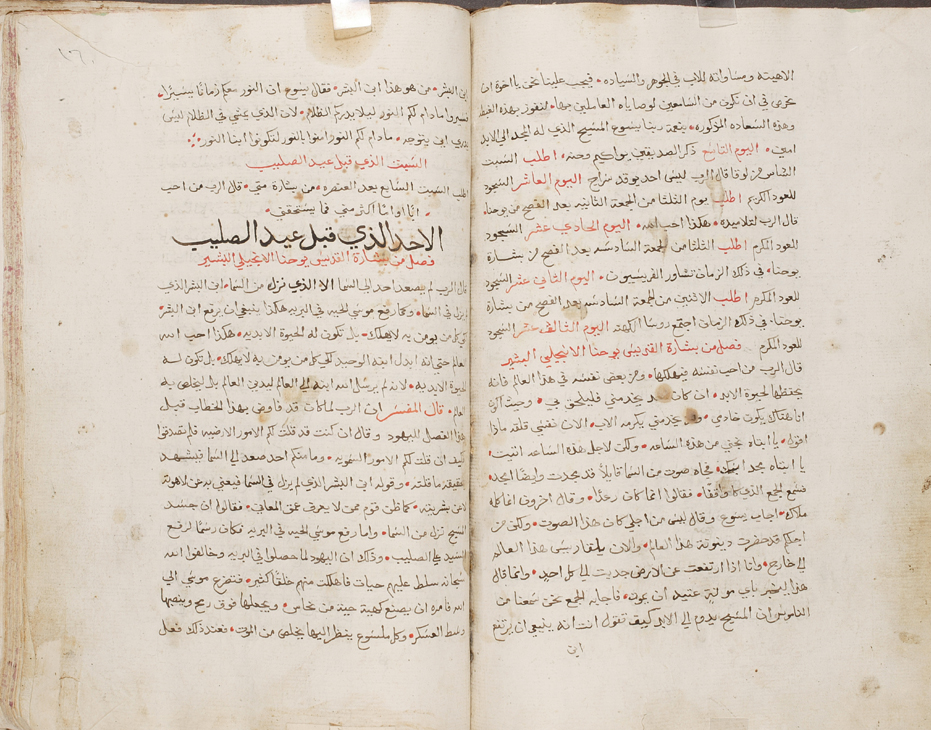 الاهيته ومساواته للاب في الجوهر والسياده • فيجب علينا نحن يا اخوه ان
نحرص في ان نكون من السامعين لوصاياه العاملين بها • لنفوز بهذه الغبطه
وهذه السعاده المذكوره • بنعمة ربنا يسوع المسيح الذي له المجد الى الابد
امين • اليوم التاسع ذكر الصديقين يواكيم وحنه • اطلب السبت
السادس من لوقا قال الرب ليس احد يوقد سراج اليوم العاشر السجود
للعود الكريم اطلب يوم الثلثا من الجمعة الثانيه بعد الفصح من يوحنا •
قال الرب لتلاميذه • هكذا احب الله • اليوم الحادي عشر السجود
للعود المكرم اطلب الثلثا من الجمعة السادسه بعد الفصح من بشارة
يوحنا • في ذلك الزمان تشاور الفريسيون • اليوم الثاني عشر السجود
للعود المكرم اطلب الاثنين من الجمعة السادسه بعد الفصح من بشارة
يوحنا • في ذلك الزمان اجتمع روسا الكهنه اليوم الثالث عشر السجود
للعود المكرم فصل من بشارة القديس يوحنا الانجيلي البشير
قال الرب من احب نفسه فيهلكها • ومن يبغض نفسه في هذا العالم فانه
يحتفظها لحيوة الابد • ان كان احد يخدمني فليلحق بي • وحيث اكون
انا هناك يكون خادمي • ومن يخدمني يكرمه الاب • الان نفسي قلقه ماذا
اقول • يا ابتاه نجني من هذه الساعه • ولكن لاجل هذه الساعه اتيت •
يا ابتاه مجد اسمك • فجاه صوت من السما قايلاً قد مجدت وايضاً امجد •
فسمع الجمع الذي كان واقفاً • فقالوا انما كان رعداً • وقال اخرون انما كلمه
ملاك • اجاب يسوع وقال ليس من اجلي كان هذا الصوت • ولكن من
اجلكم قد حضرت دينونة هذا العالم • والان يلقا رييس هذا العالم
الى خارج • وانا اذا ارتفعت عن الارض جذبت الي كل احد • وانما قال
هذا ليخبر باي موتة عتيد ان يموت • فاجابه الجمع نحن سمعنا من
الناموس ان المسيح يدوم الى الابد كيف تقول انت انه ينبغي ان يرتفع
ابن
١٦
ابن البشر • من هو هذا ابن البشر • فقال يسوع ان النور معكم زمانًا يسيرًا •
فسيروا ما دام لكم النور ليلا يدرككم الظلام • لان الذي يمشي في الظلام ليس
يدري اين يتوجه • ما دام لكم النور امنوا بالنور لتكونوا ابنا النور •
السبت الذي قبل عيد الصليب
اطلب السبت السابع بعد العنصره • من بشارة متى • قال الرب من احب
ابًا او امًا اكثر مني فما يستحقني •
الاحد الذي قبل عيد الصليب
فصل من بشارة القديس يوحنا الانجيلي البشير
قال الرب لم يصعد احد الى السما الا الذي نزل من السما • ابن البشر الذي
لم يزل في السما • وكما رفع موسى الحيه في البريه هكذا ينبغي ان يرفع ابن البشر •
لكي كل من يومن به لا يهلك • بل تكون له الحيوة الابديه • هكذا احب الله
العالم حتى انه ابذل ابنه الوحيد لكي كل من يومن به لا يهلك • بل تكون له
الحيوة الابديه • لانه لم يرسل الله ابنه الى العالم ليدين العالم بل ليخلص به
العالم • قال المفسر ان الرب لما كان قد فاوض بهذا الخطاب قبل
هذا الفصل لليهود وقال ان كنت قد قلت لكم الامور الارضيه فلم تصدقوا
كيف ان قلت لكم الامور السمويه • وما منكم احد صعد الى السما فيشهد
بحقيقة ما قلته • وقوله ابن البشر الذي لم يزل في السما فيعني به عن لاهوته
لا عن بشريته • كما ظن قوم ممن لا يعرف عمق المعاني • فقالوا ان جسد
المسيح نزل من السما • واما رفع موسى الحيه في البريه فكان رسمًا لرفع
السيد على الصليب • وذلك ان اليهود لما حصلوا في البريه وخالفوا الله
سبحانه سلط عليهم حيات فاهلكت منهم خلقًا كثير • فتضرع موسى الى
الله فامره ان يصنع كهية حية من نحاس • ويجعلها فوق رمح وينصبها
وسط العسكر • وكل ملسوع ينظر اليها يخلص من الموت • فعند ذلك فعل